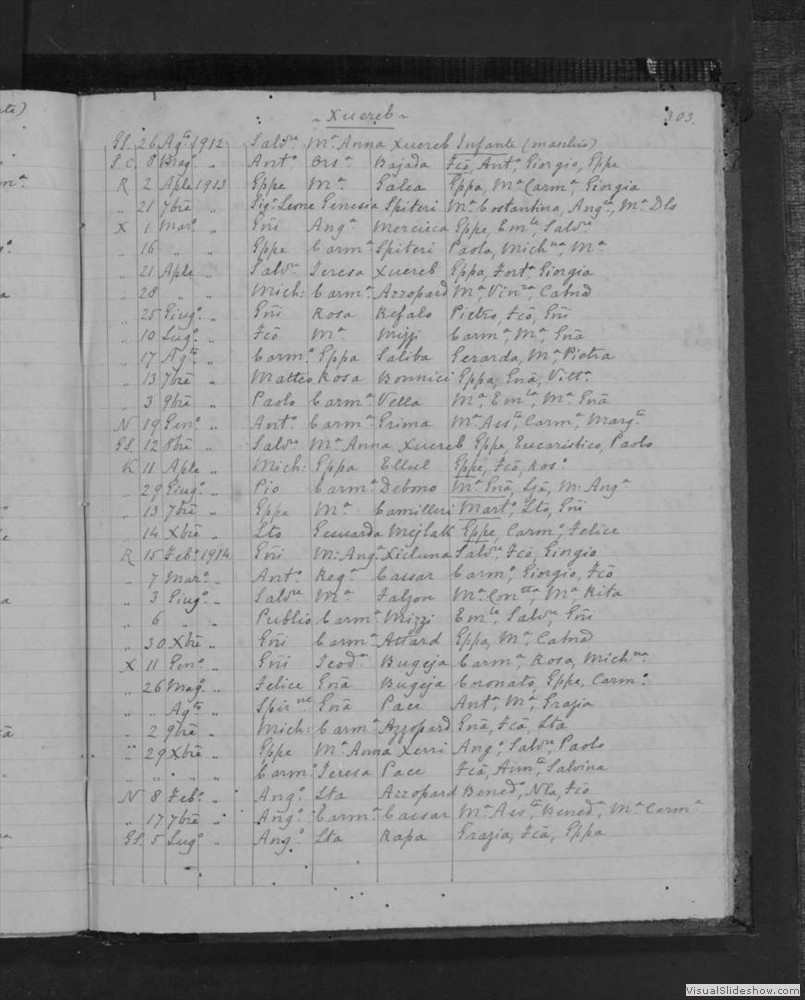 - Xuereb -
303
GS. 26 Agto 1912 Salvre Ma Anna Xuereb Infante (maschio)
S.C. 8 Mago „ Anto Orsa Bajada Fcō, Anto, Giorgio, Eppe
R 2 Aple 1913 Eppe Ma Galea Eppa, Ma Carma Giorgia
„ 21 7brē „ Sigr Leone Genesia Spiteri Ma Costantina, Anglca, Ma Dls
X 1 Maro „ Gñi Anga Mercieca Eppe, Emle, Salvre
„ 16 „ „ Eppe Carma Spiteri Paola, Michna, Ma
„ 21 Aple „ Salvre Teresa Xuereb Eppa, Forta Giorgia
„ 28 „ „ Mich: Carma Azzopard Ma, Vinza, Catnā
„ 25 Giugo „ Gñi Rosa Refalo Pietro, Fcō, Gñi
„ 10 Lugo „ Fcō Ma Mizzi Carma, Ma, Gnā
„ 17 Agto „ Carmo Eppa Saliba Gerarda, Ma, Pietra
„ 13 7brē „ Matteo Rosa Bonnici Eppa, Gnā, Vitta
„ 3 9brē „ Paolo Carma Vella Ma, Emla, Ma Gnā
N 19 Geno „ Anto Carma Grima Ma Assta, Carma, Margta
GS. 12 8brē „ Salvre Ma Anna Xuereb Eppe, Eucaristico, Paolo
K 11 Aple „ Mich: Eppa Ellul Eppe, Fcō, Roso
„ 29 Giugo „ Pio Carma Debono Ma Gnā, Ljā, M: Anga
„ 13 7brē „ Eppe Ma Camilleri Marto, Lto, Gñi
„ 14 Xbrē „ Lto Gesuarda Mejlak Eppe, Carmo, Felice
R 15 Febo 1914 Gñi M: Anga Xicluna Salvre, Fcō, Giorgio
„ 7 Maro „ Anto Rega Cassar Carmo, Giorgio, Fcō
„ 3 Giugo „ Salvre Ma Falzon Ma Contta, Ma Rita
„ 6 „ „ Publio Carma Mizzi Emle, Salvre, Gñi
„ 30 Xbrē „ Gñi Carma Attard Eppa, Ma, Catnā
X 11 Geno „ Gñi Teoda Bugeja Carma, Rosa, Michna
„ 26 Mago „ Felice Gnā Bugeja Coronato, Eppe, Carmo
„ „ Agto „ Spirne Gnā Pace Anta, Ma, Grazia
„ 2 9brē „ Mich: Carma Azzopard Gnā, Fcā, Lta
„ 29 Xbrē „ Eppe Ma Anna Xerri Ango, Salvre, Paolo
„ „ „ „ Carmo Teresa Pace Fcā, Annta, Salvina
N 8 Febo „ Ango Lta Azzopard Benedo, Nla, Fcō
„ 17 7brē „ Ango Carma Cassar Ma Assta, Beneda, Ma Carma
GS. 5 Lugo „ Ango Lta Rapa Grazia, Fcā, Eppa
VisualSlideshow.com